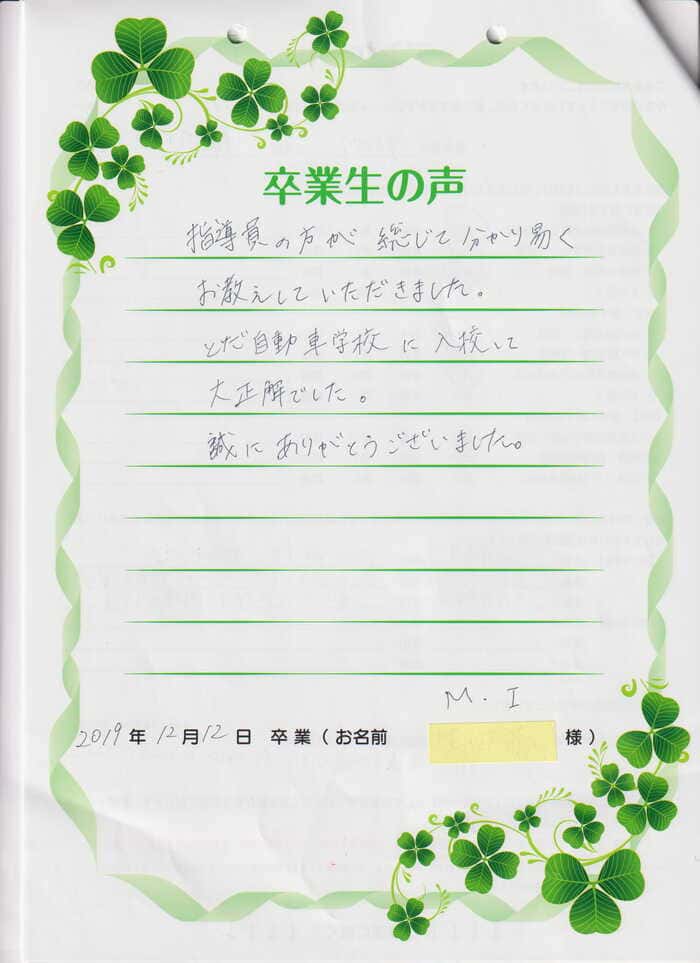 卒業生の声
指導員の方が 総じて分かり易く
お教えしていただきました。
とだ自動車学校に入校して
大正解でした。
誠にありがとうございました。
M・I
2019年12月12日 卒業(お名前 様)